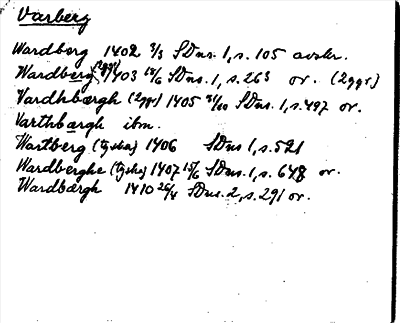 Varberg
Wardborg 1402 3/3 SDns. 1, s. 105 avskr.
Wardberg (2ggr) 1403 18/6 SDns. 1, s. 263 or. (2ggr)
Vardhbærgh (2ggr) 1405 31/10 SDns. 1, s. 497 or.
Varthbærgh ibm.
Wartberg (tyska) 1406 SDns 1, s. 521
Wardberghe (tyska) 1407 15/6 SDns. 1, s. 648 or.
Wardbærgh 1410 26/4 SDns. 2, s. 291 or.